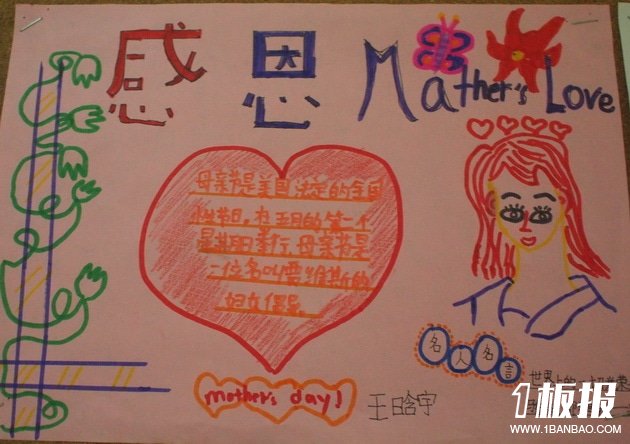 感恩 Mather's Love
母亲节是美国法定的全国
性节日,在五月的第二个
星期日举行,母亲节是
一位名叫贾维斯的
妇女倡导
名人名言
世界上的一切光荣
mother's day!
王晗宇
1板报
WWW.1BANBAO.COM